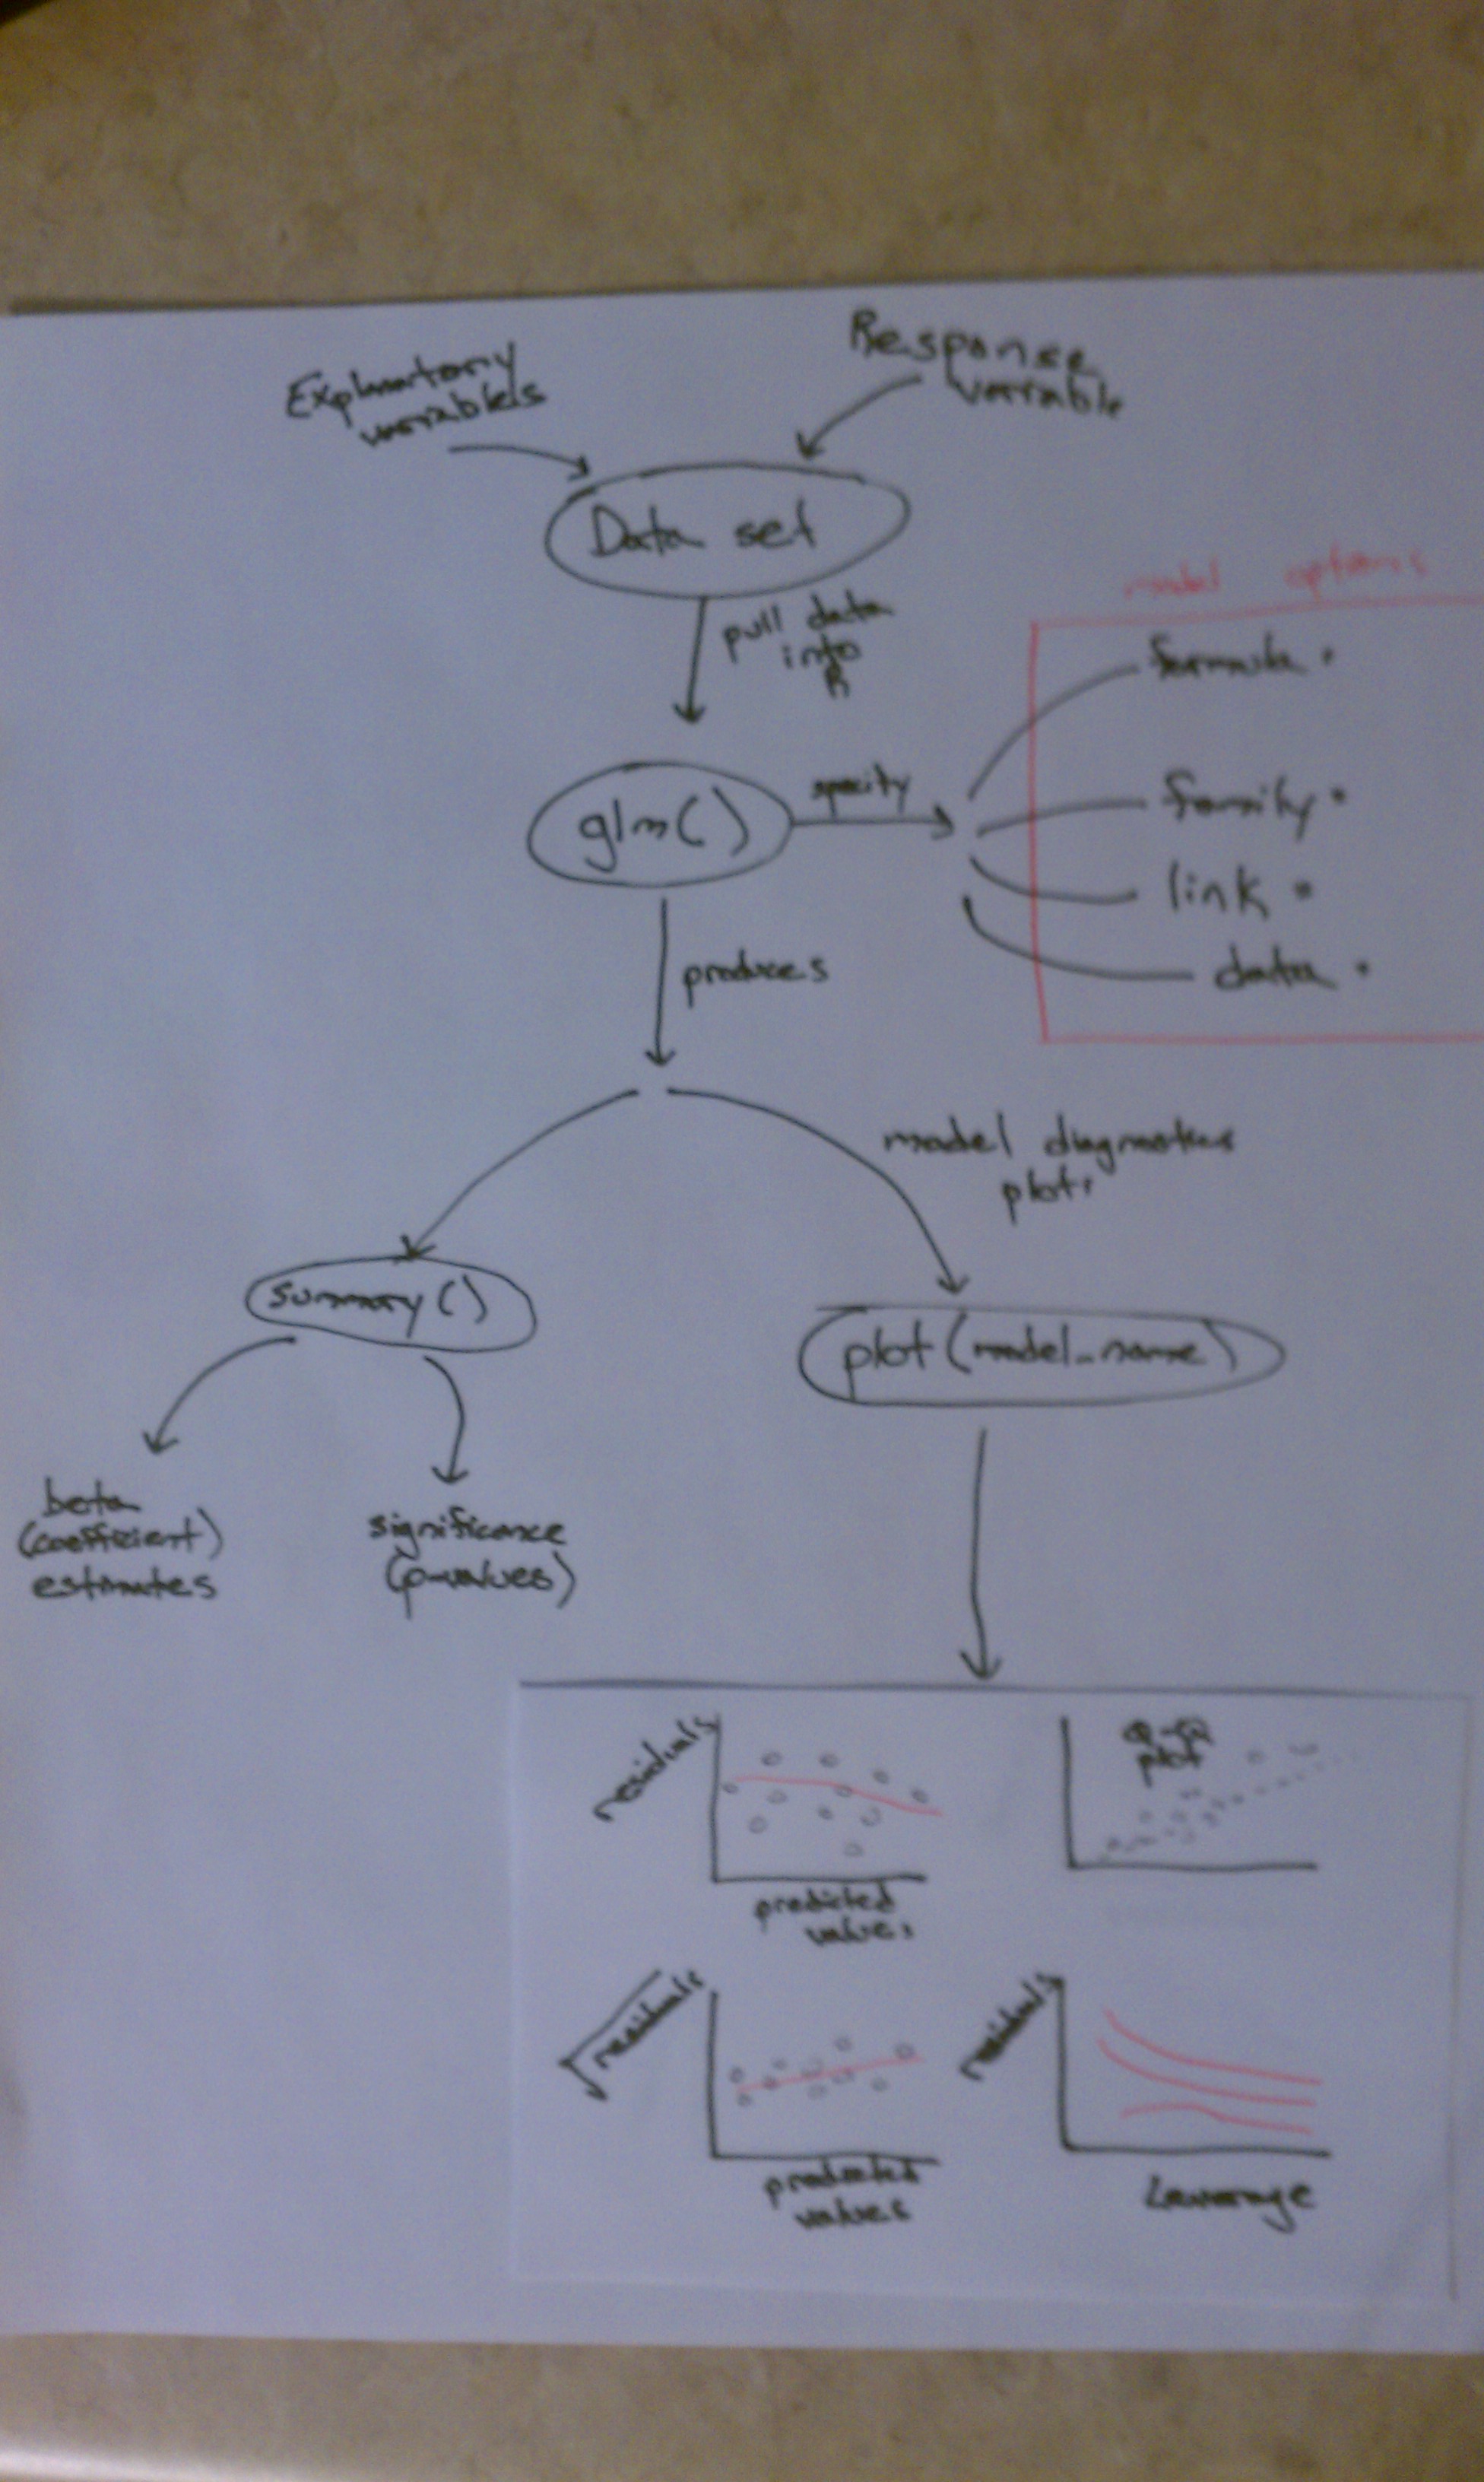 Explanatory
variables
Response
variable
Data set
pull data
into
R
model options
formula
glm()
specify
family
link
data
produces
model diagnostics
plots
summary()
plot(model_name)
beta
(coefficient)
estimates
significance
(p-values)
residuals
predicted
values
Q-Q
plot
√residuals
predicted
values
residuals
Leverage